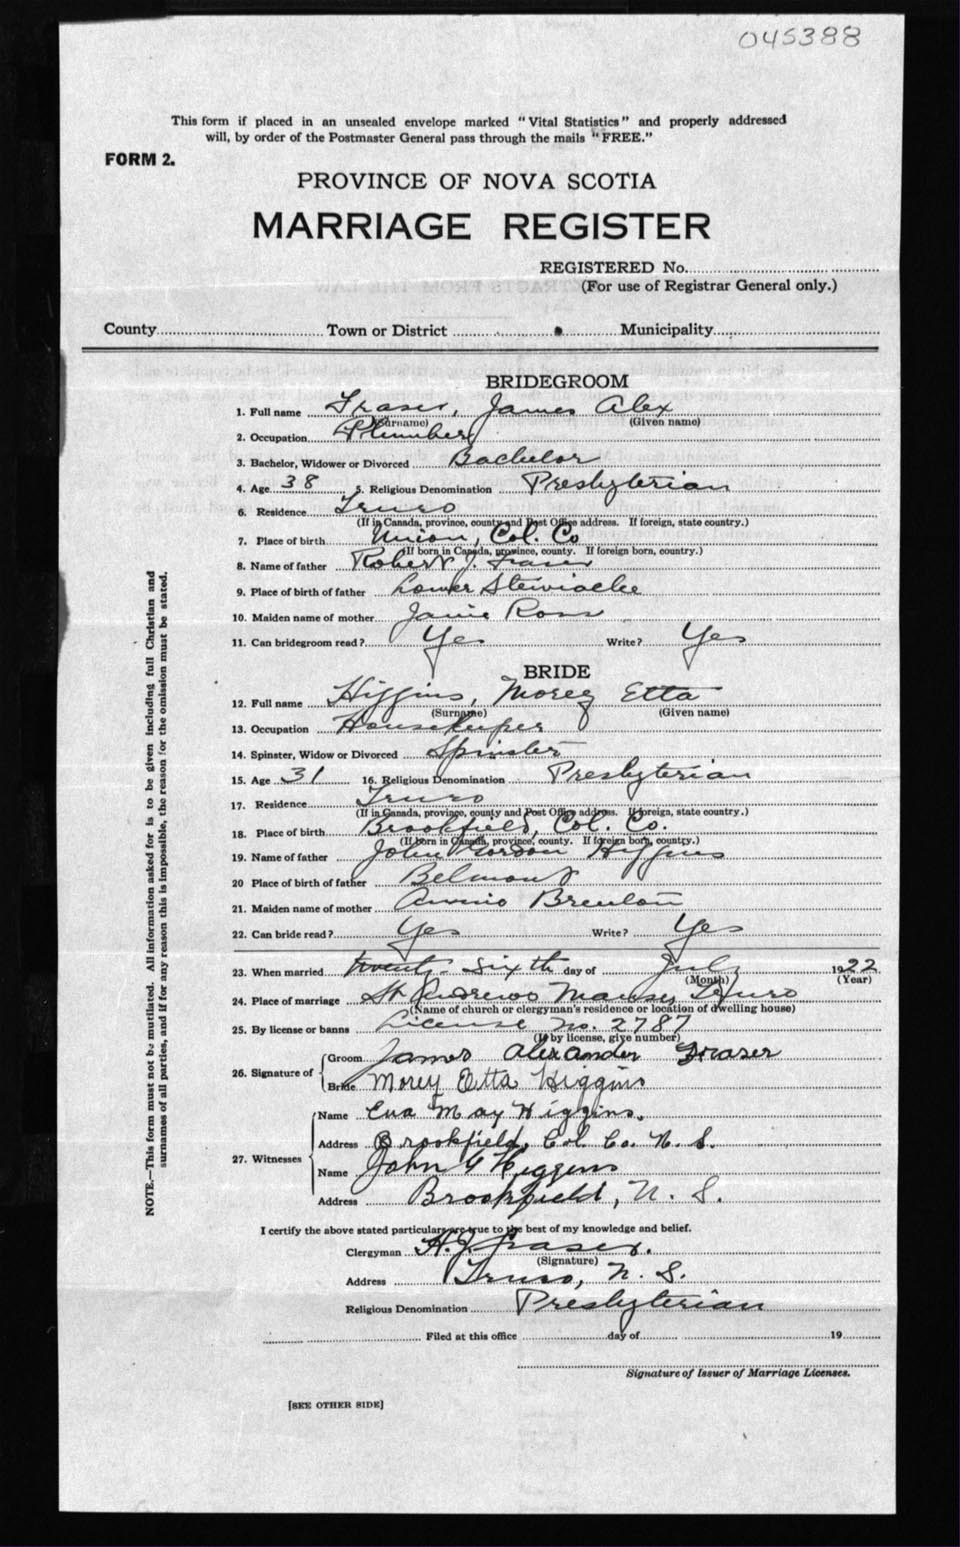 045388
This form if placed in an unsealed envelope marked "Vital Statistics" and properly addressed
will, by order of the Postmaster General pass through the mails "FREE."
FORM 2.
PROVINCE OF NOVA SCOTIA
MARRIAGE REGISTER
REGISTERED No.
(For use of Registrar General only.)
County Town or District Municipality
BRIDEGROOM
1. Full name Fraser, James Alex
(Surname) (Given name)
2. Occupation Plumber
3. Bachelor, Widower or Divorced Bachelor
4. Age 38 5. Religious Denomination Presbyterian
6. Residence Truro
(If in Canada, province, county and Post Office address. If foreign, state country.)
7. Place of birth Union, Col. Co
(If born in Canada, province, county. If foreign born, country.)
8. Name of father Robert J. Fraser
9. Place of birth of father Lower Stewiacke
10. Maiden name of mother Janie Ross
11. Can bridegroom read? Yes Write? Yes
BRIDE
12. Full name Higgins, Morey Etta
(Surname) (Given name)
13. Occupation Housekeeper
14. Spinster, Widow or Divorced Spinster
15. Age 31 16. Religious Denomination Presbyterian
17. Residence Truro
(If in Canada, province, county and Post Office address. If foreign, state country.)
18. Place of birth Brookfield, Col. Co.
(If born in Canada, province, county. If foreign born, country.)
19. Name of father John Gordon Higgins
20 Place of birth of father Belmont
21. Maiden name of mother Annie Brenton
22. Can bride read? Yes Write? Yes
23. When married twenty-sixth day of July 1922
(Month) (Year)
24. Place of marriage St Andrews Manse, Truro
(Name of church or clergyman's residence or location of dwelling house)
25. By license or banns License no. 2787
(If by license, give number)
26. Signature of Groom James Alexander Fraser
Bride Morey Etta Higgins
27. Witnesses Name Eva May Higgins.
Address Brookfield, Col. Co. N. S.
Name John G Higgins
Address Brookfield, N. S.
I certify the above stated particulars are true to the best of my knowledge and belief.
Clergyman A. J. Fraser.
(Signature)
Address Truro, N. S.
Religious Denomination Presbyterian
Filed at this office day of 19
Signature of Issuer of Marriage Licenses.
[SEE OTHER SIDE]
NOTE.—This form must not be mutilated. All information asked for is to be given including full Christian and
surnames of all parties, and if for any reason this is impossible, the reason for the omission must be stated.